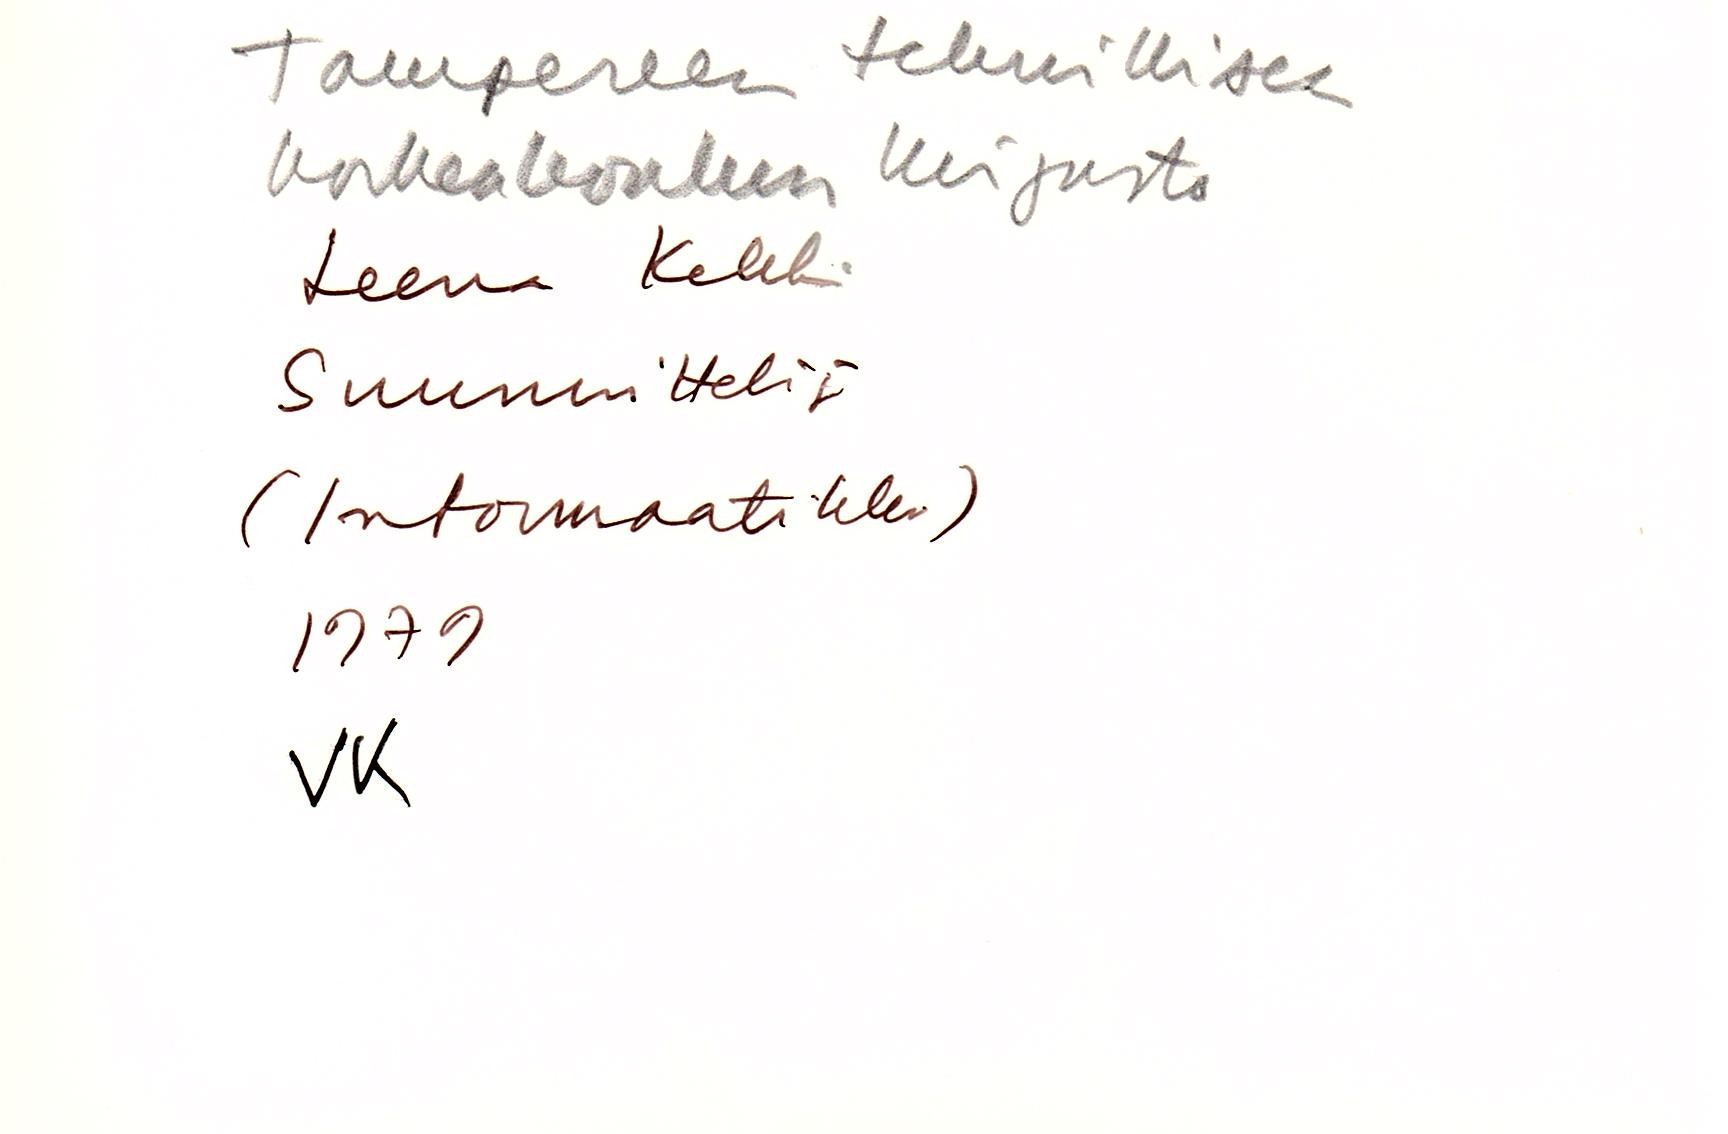 Tampereen teknillisen
korkeakoulun kirjasto
Leena
Suunnittelij
(Informaatikko)
1979
VK